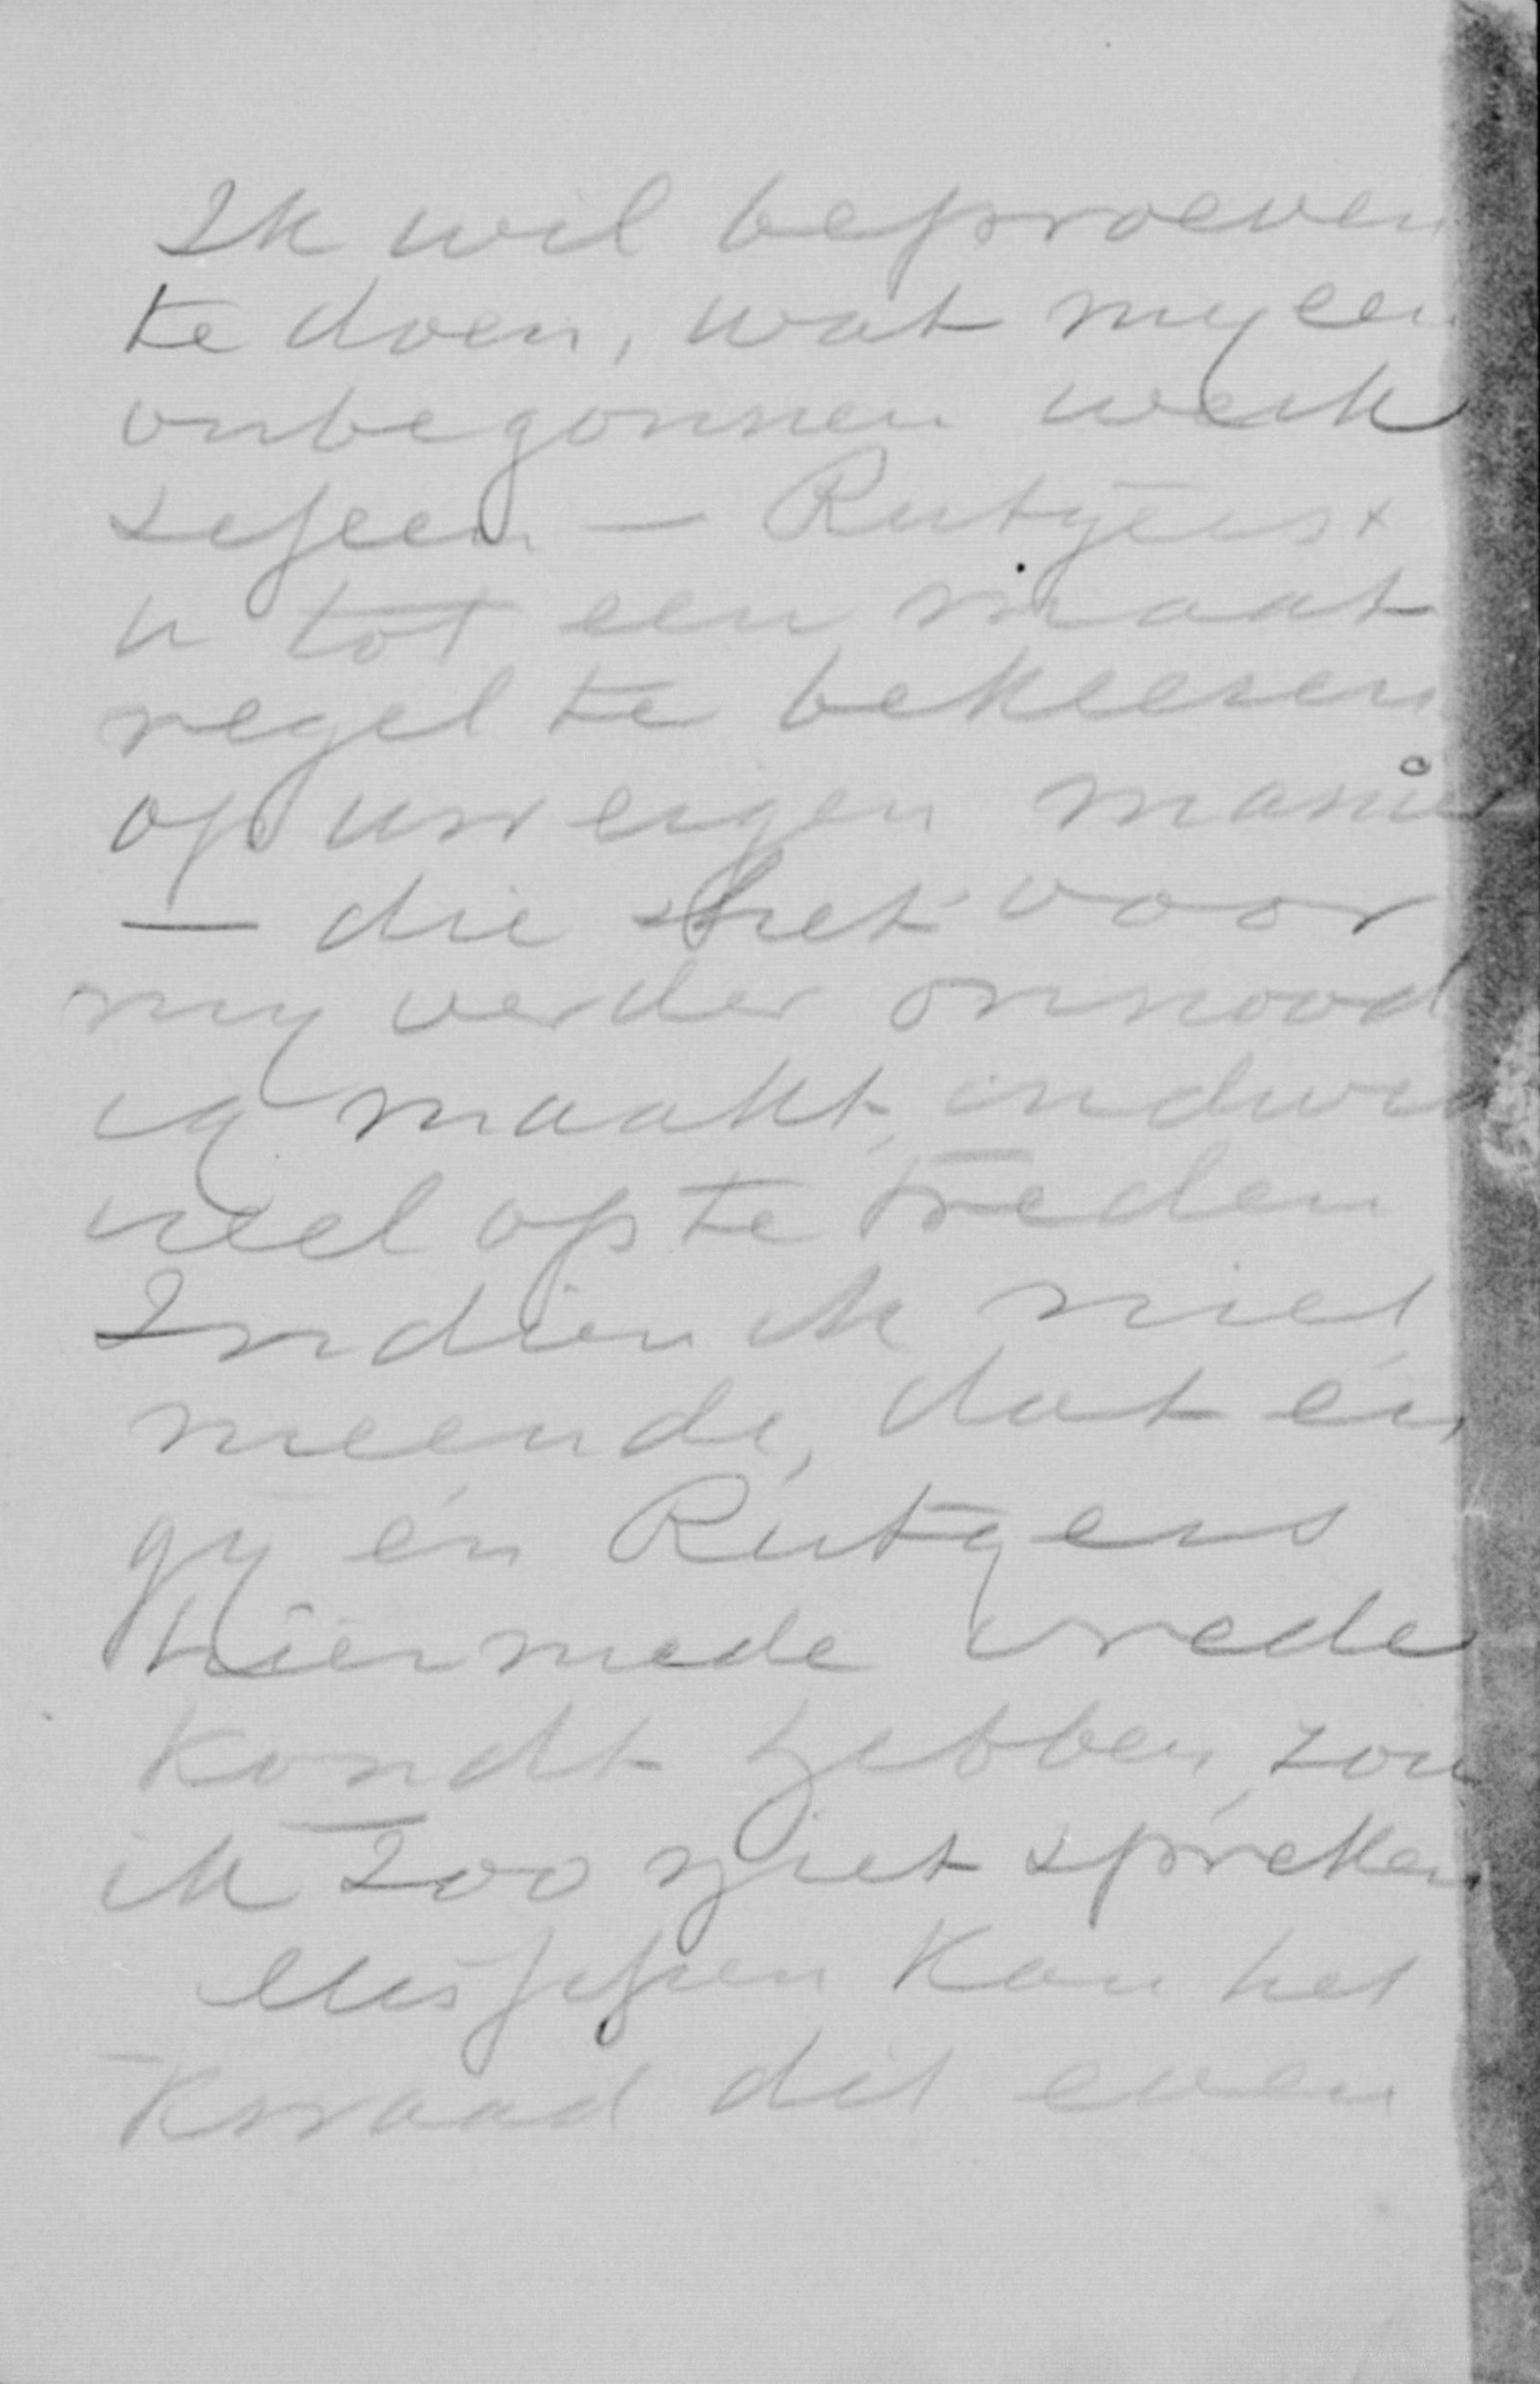 Ik wil beproeven
te doen, wat my een
onbegonnen werk
scheen — Rutgers +
u tot een maat
regel te bekeeren
op uw eigen manier
— die het voor
my verder onnood
ig maakt, indivi
ueel op te treden
Indien ik niet
meende, dat én
gy én Rutgers
hiermede vrede
kondt hebben, zou
ik zoo niet spreken
Misschien kan het
kwaad dit even